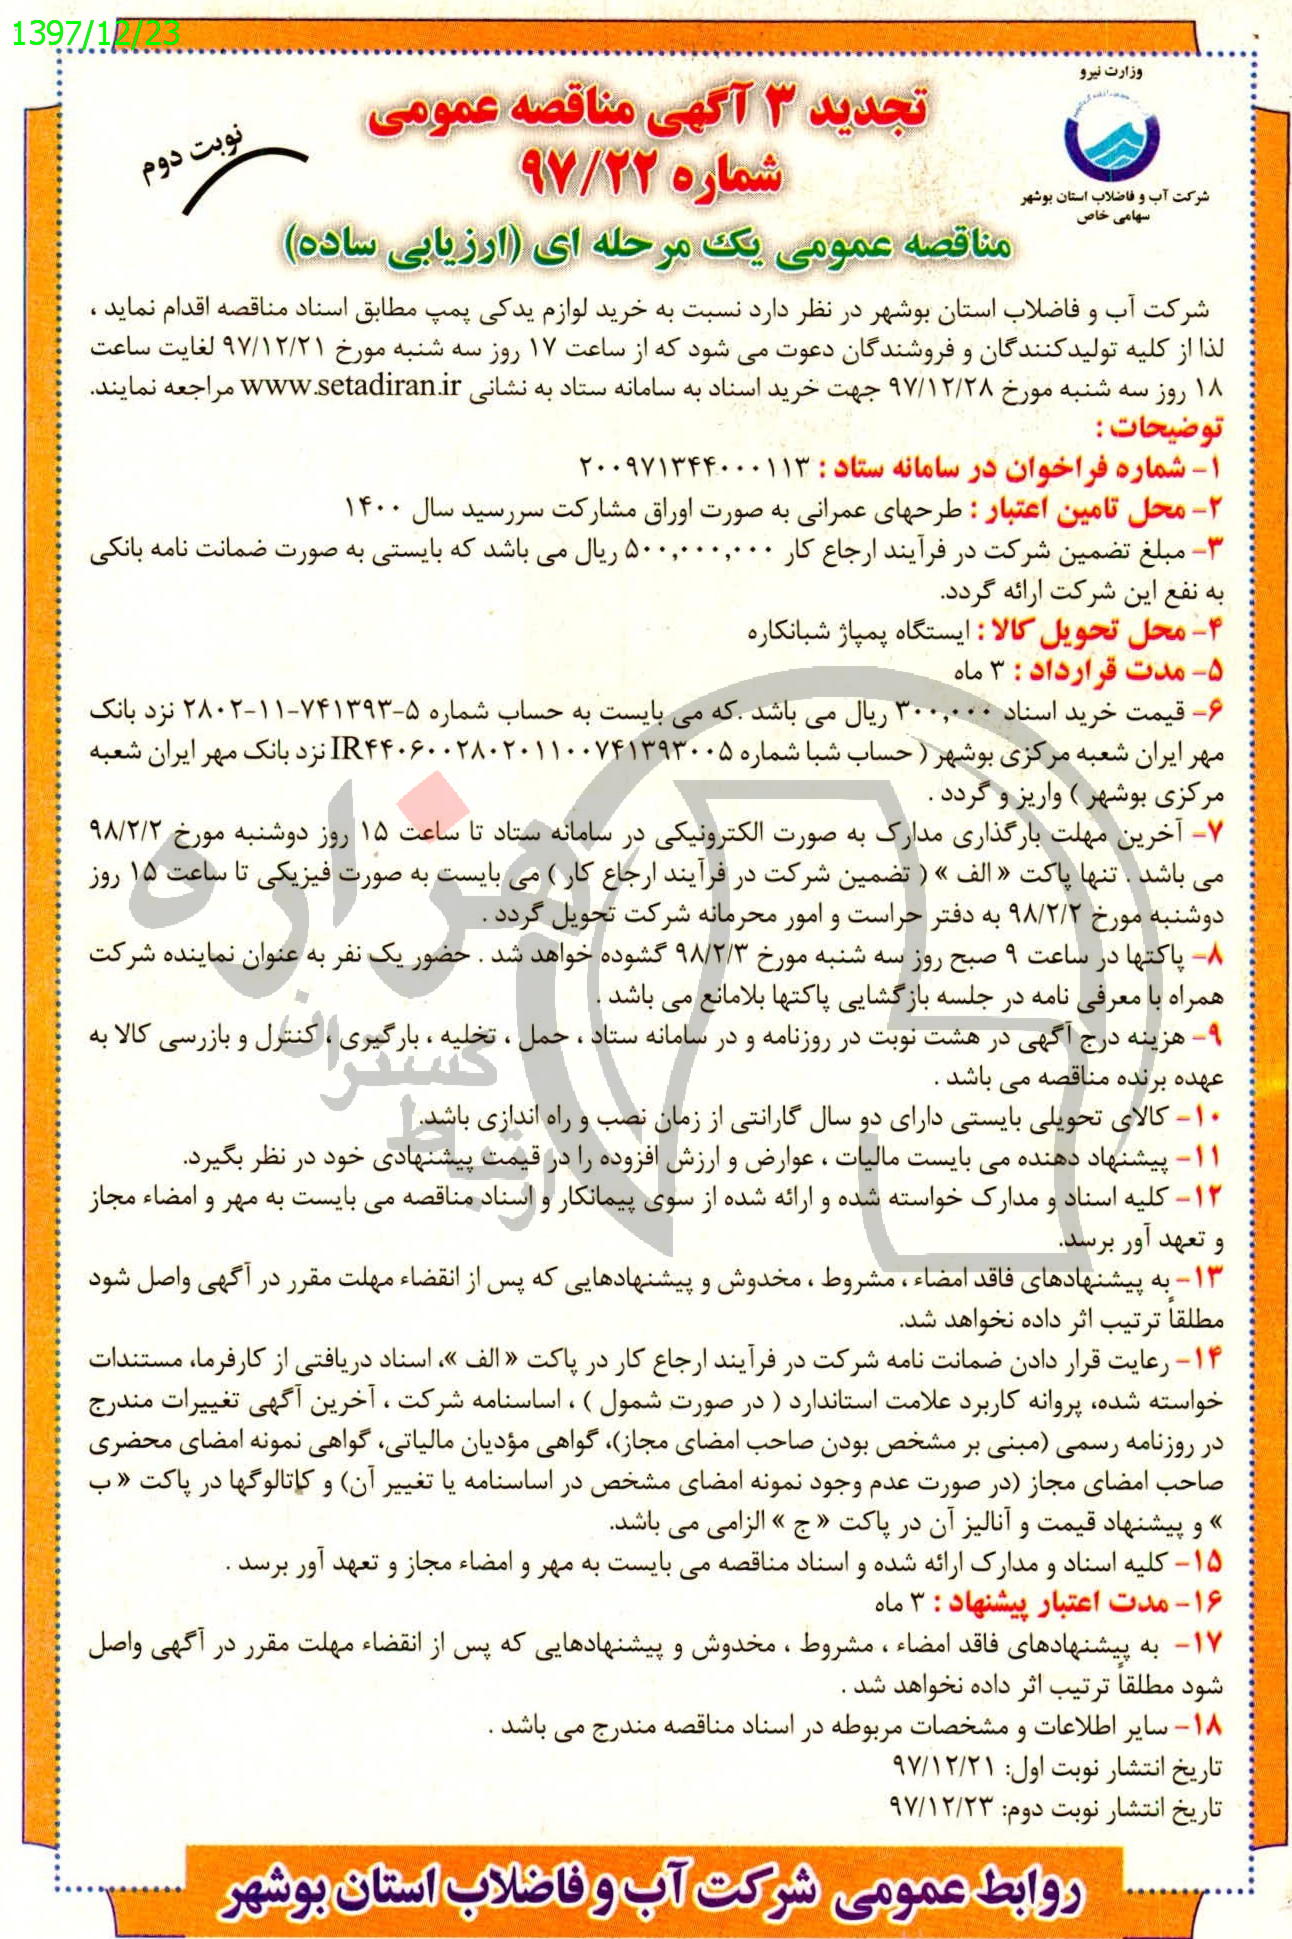 1397/12/23
وزارت نیرو
شرکت آب و فاضلاب استان بوشهر
سهامی خاص
تجدید ۳ آگهی مناقصه عمومی
شماره ۹۷/۲۲
نوبت دوم
مناقصه عمومی یک مرحله ای (ارزیابی ساده)
شرکت آب و فاضلاب استان بوشهر در نظر دارد نسبت به خرید لوازم یدکی پمپ مطابق اسناد مناقصه اقدام نماید ،
لذا از کلیه تولیدکنندگان و فروشندگان دعوت می شود که از ساعت ۱۷ روز سه شنبه مورخ ۹۷/۱۲/۲۱ لغایت ساعت
۱۸ روز سه شنبه مورخ ۹۷/۱۲/۲۸ جهت خرید اسناد به سامانه ستاد به نشانی www.setadiran.ir مراجعه نمایند.
توضیحات :
۱- شماره فراخوان در سامانه ستاد : ۲۰۰۹۷۱۳۴۴۰۰۰۱۱۳
۲- محل تامین اعتبار : طرحهای عمرانی به صورت اوراق مشارکت سررسید سال ۱۴۰۰
۳- مبلغ تضمین شرکت در فرآیند ارجاع کار ۵۰۰,۰۰۰,۰۰۰ ریال می باشد که بایستی به صورت ضمانت نامه بانکی
به نفع این شرکت ارائه گردد.
۴- محل تحویل کالا : ایستگاه پمپاژ شبانکاره
۵- مدت قرارداد : ۳ ماه
۶- قیمت خرید اسناد ۳۰۰,۰۰۰ ریال می باشد .که می بایست به حساب شماره ۵-۷۴۱۳۹۳-۱۱-۲۸۰۲ نزد بانک
مهر ایران شعبه مرکزی بوشهر ( حساب شبا شماره IR۴۴۰۶۰۰۲۸۰۲۰۱۱۰۰۷۴۱۳۹۳۰۰۵ نزد بانک مهر ایران شعبه
مرکزی بوشهر ) واریز و گردد .
۷- آخرین مهلت بارگذاری مدارک به صورت الکترونیکی در سامانه ستاد تا ساعت ۱۵ روز دوشنبه مورخ ۹۸/۲/۲
می باشد . تنها پاکت « الف » ( تضمین شرکت در فرآیند ارجاع کار ) می بایست به صورت فیزیکی تا ساعت ۱۵ روز
دوشنبه مورخ ۹۸/۲/۲ به دفتر حراست و امور محرمانه شرکت تحویل گردد .
۸- پاکتها در ساعت ۹ صبح روز سه شنبه مورخ ۹۸/۲/۳ گشوده خواهد شد . حضور یک نفر به عنوان نماینده شرکت
همراه با معرفی نامه در جلسه بازگشایی پاکتها بلامانع می باشد .
۹- هزینه درج آگهی در هشت نوبت در روزنامه و در سامانه ستاد ، حمل ، تخلیه ، بارگیری ، کنترل و بازرسی کالا به
عهده برنده مناقصه می باشد .
۱۰- کالای تحویلی بایستی دارای دو سال گارانتی از زمان نصب و راه اندازی باشد.
۱۱- پیشنهاد دهنده می بایست مالیات ، عوارض و ارزش افزوده را در قیمت پیشنهادی خود در نظر بگیرد.
۱۲- کلیه اسناد و مدارک خواسته شده و ارائه شده از سوی پیمانکار و اسناد مناقصه می بایست به مهر و امضاء مجاز
و تعهد آور برسد.
۱۳- به پیشنهادهای فاقد امضاء ، مشروط ، مخدوش و پیشنهادهایی که پس از انقضاء مهلت مقرر در آگهی واصل شود
مطلقاً ترتیب اثر داده نخواهد شد.
۱۴- رعایت قرار دادن ضمانت نامه شرکت در فرآیند ارجاع کار در پاکت « الف »، اسناد دریافتی از کارفرما، مستندات
خواسته شده، پروانه کاربرد علامت استاندارد ( در صورت شمول ) ، اساسنامه شرکت ، آخرین آگهی تغییرات مندرج
در روزنامه رسمی (مبنی بر مشخص بودن صاحب امضای مجاز)، گواهی مؤدیان مالیاتی، گواهی نمونه امضای محضری
صاحب امضای مجاز (در صورت عدم وجود نمونه امضای مشخص در اساسنامه یا تغییر آن) و کاتالوگها در پاکت « ب
» و پیشنهاد قیمت و آنالیز آن در پاکت « ج » الزامی می باشد.
۱۵- کلیه اسناد و مدارک ارائه شده و اسناد مناقصه می بایست به مهر و امضاء مجاز و تعهد آور برسد .
۱۶- مدت اعتبار پیشنهاد : ۳ ماه
۱۷- به پیشنهادهای فاقد امضاء ، مشروط ، مخدوش و پیشنهادهایی که پس از انقضاء مهلت مقرر در آگهی واصل
شود مطلقاً ترتیب اثر داده نخواهد شد .
۱۸- سایر اطلاعات و مشخصات مربوطه در اسناد مناقصه مندرج می باشد .
تاریخ انتشار نوبت اول: ۹۷/۱۲/۲۱
تاریخ انتشار نوبت دوم: ۹۷/۱۲/۲۳
روابط عمومی شرکت آب و فاضلاب استان بوشهر
هزاره
گستران
ارتباط